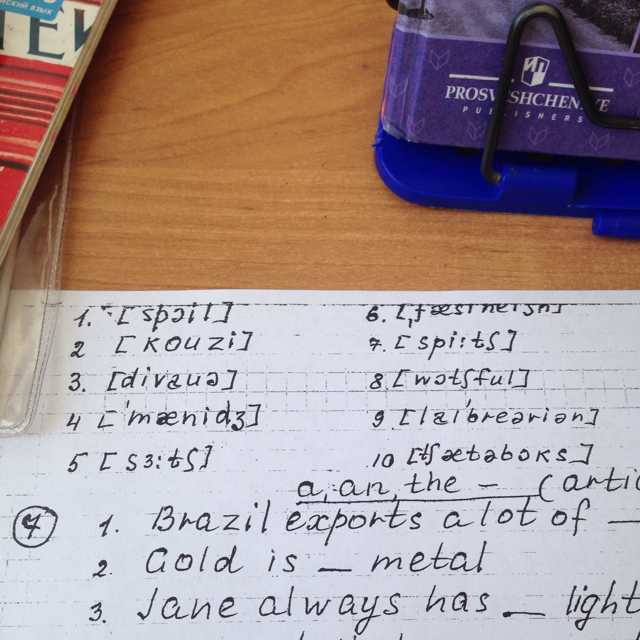 ийский язык
PROSVESHCHENIYE
PUBLISHERS
1. [spɔil]
2 [kouzi]
3. [divɛuə]
4 ['mænidʒ]
5 [sɜ:tʃ]
6.
7. [spi:tʃ]
8 [wɔtʃful]
9 [lai'breəriən]
10 [tʃætəbɒks]
a, an, the – (artic
7
1. Brazil exports a lot of _
2. Gold is _ metal
3. Jane always has _ light